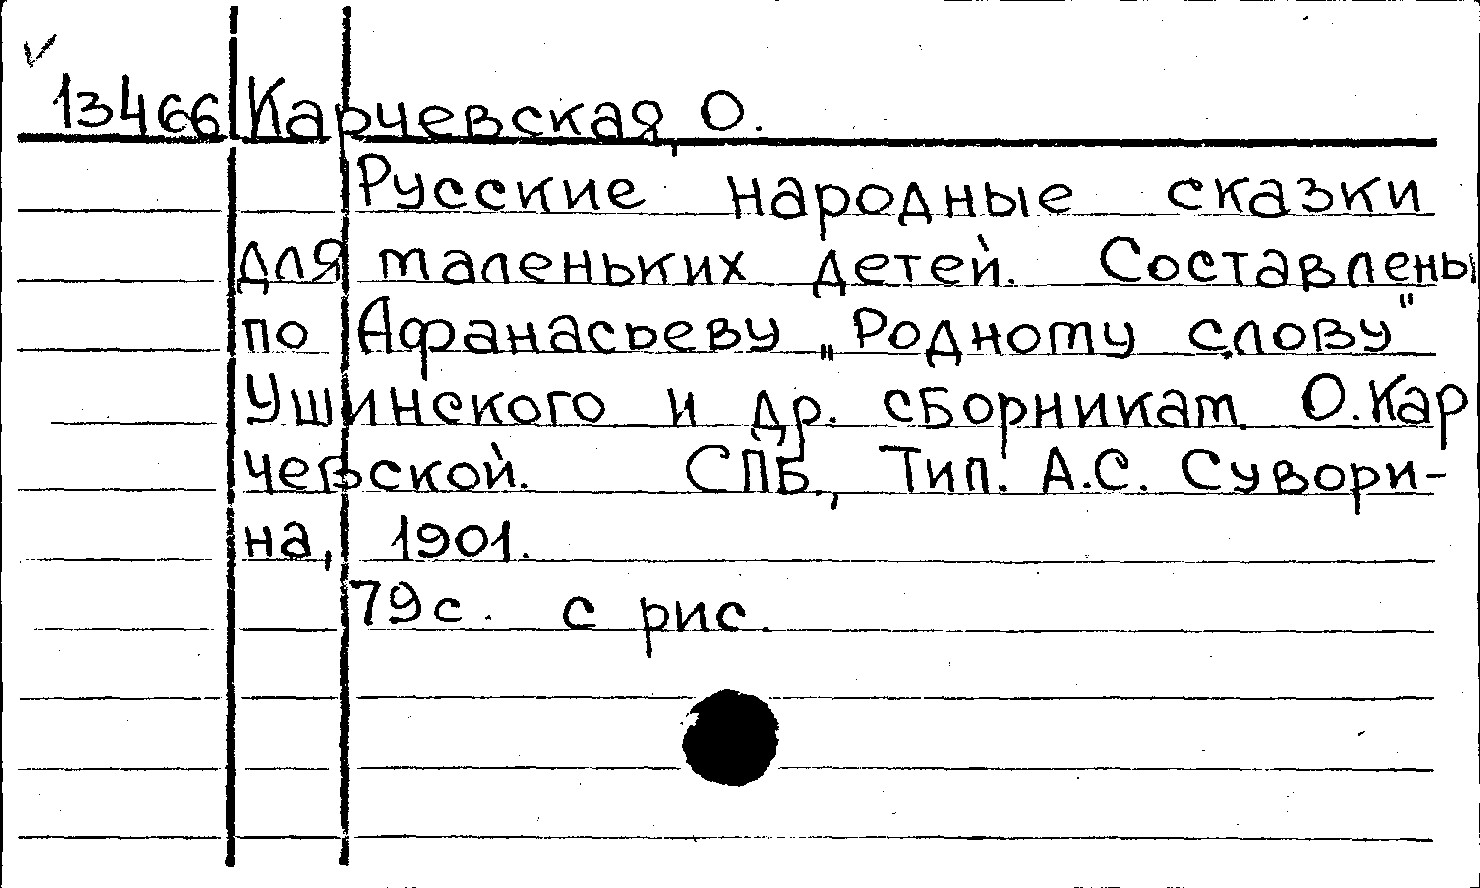 13466 Карчевская, О.
Русские народные сказки
для маленьких детей. Составлены
по Афанасьеву „Родному слову"
Ушинского и др. сборникам О. Кар
чевской. СПБ., Тип. А.С. Сувори-
на, 1901.
79с. с рис.